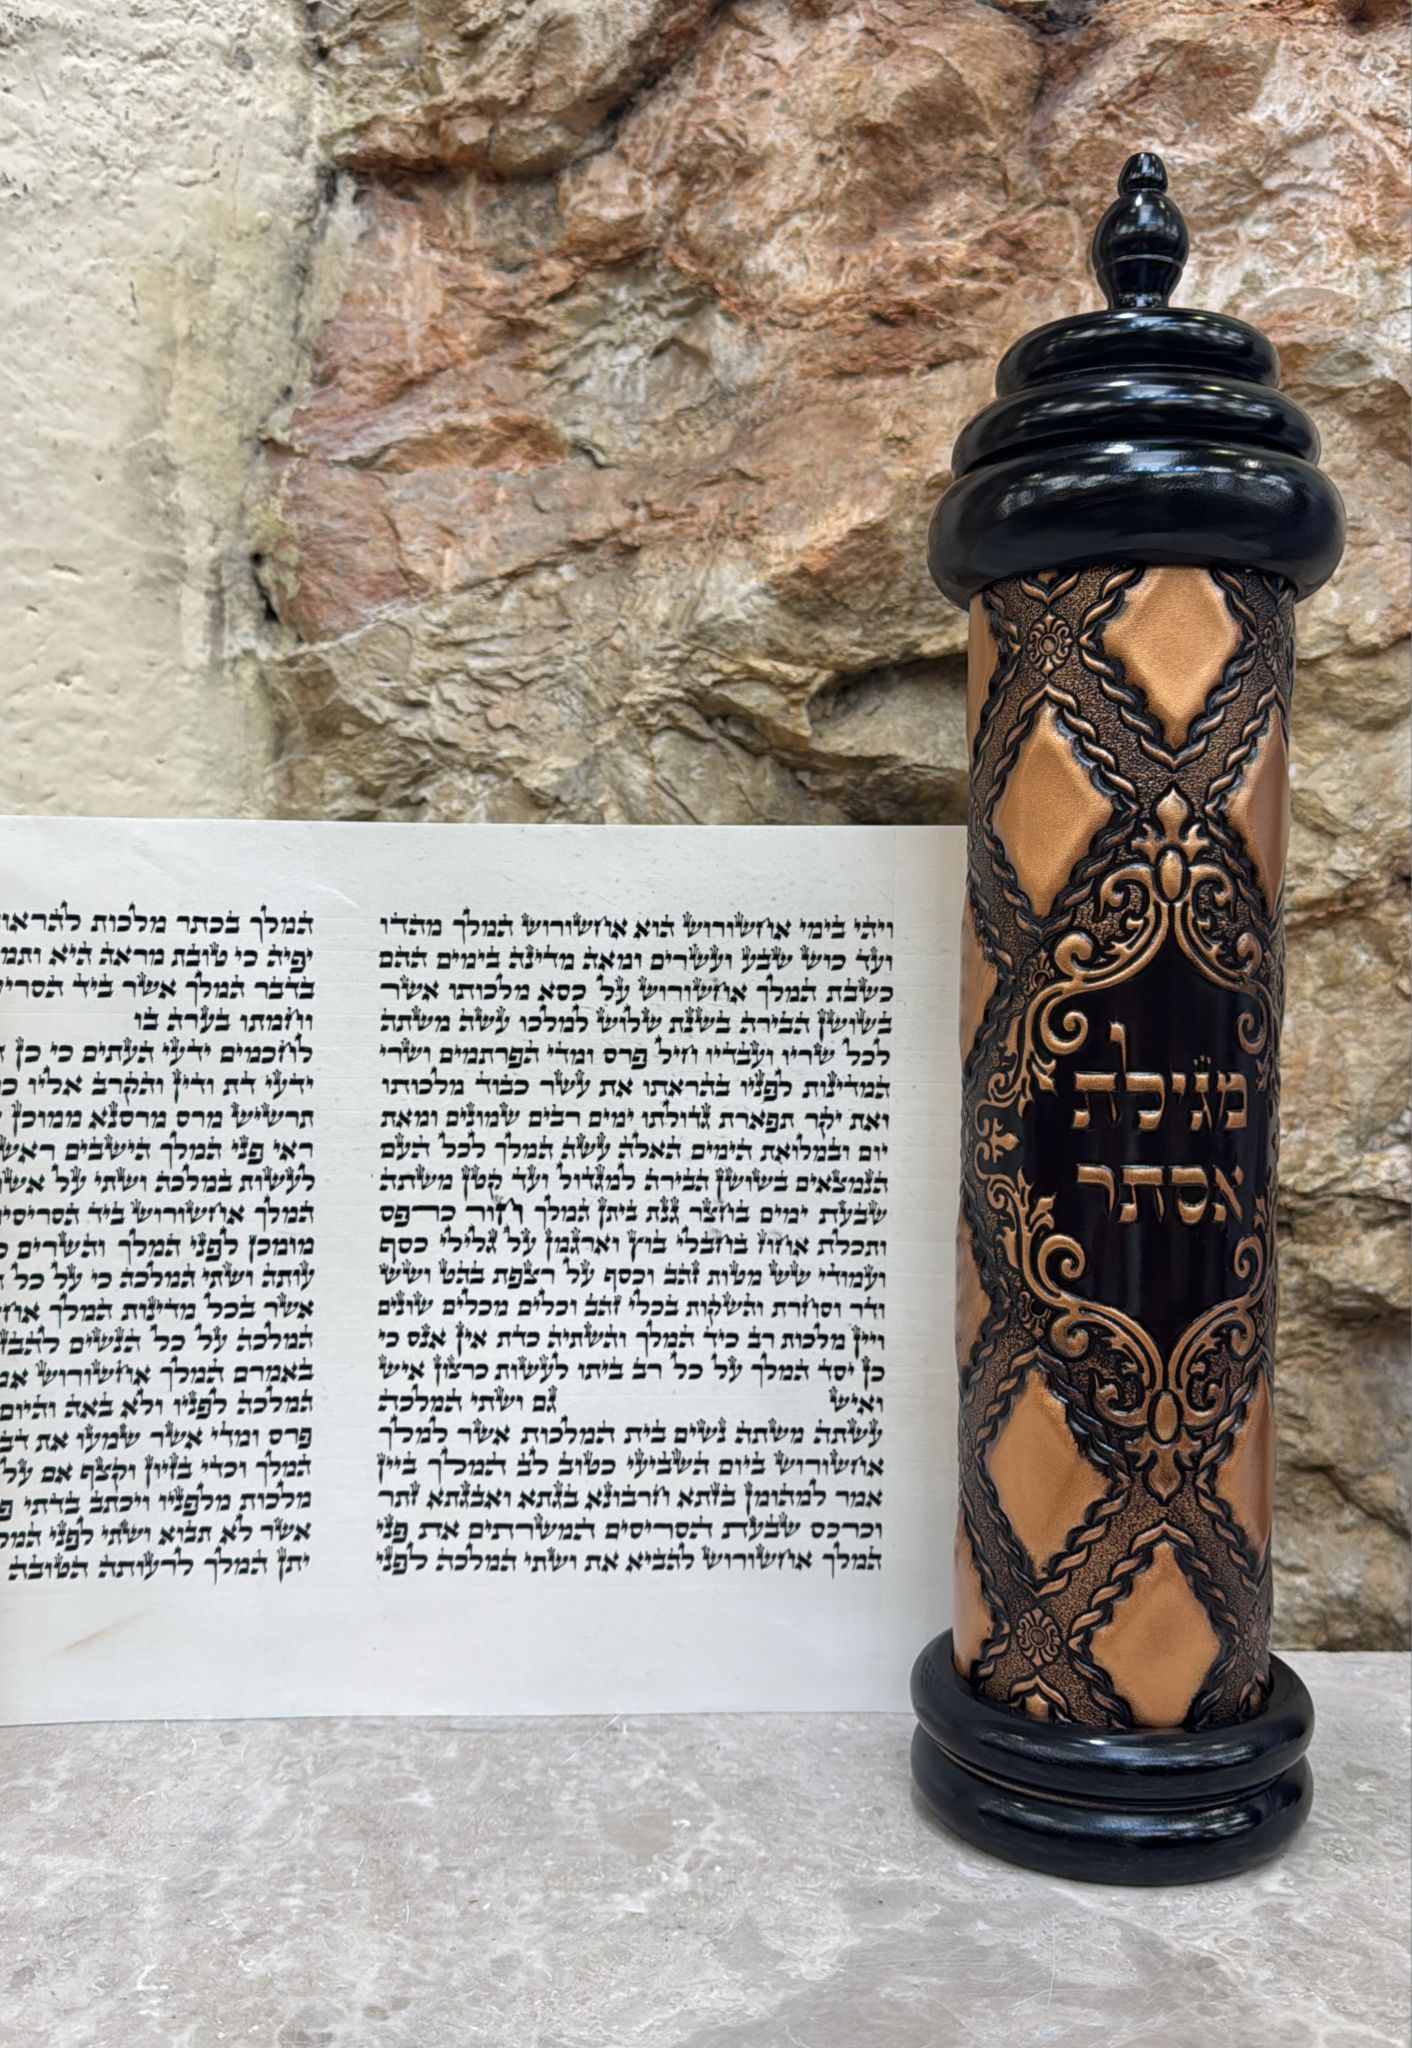 ויהי בימי אחשורוש הוא אחשורוש המלך מהדו
ועד כוש שבע ועשרים ומאה מדינה בימים ההם
כשבת המלך אחשורוש על כסא מלכותו אשר
בשושן הבירה בשנת שלוש למלכו עשה משתה
לכל שריו ועבדיו חיל פרס ומדי הפרתמים ושרי
המדינות לפניו בהראתו את עשר כבוד מלכותו
ואת יקר תפארת גדולתו ימים רבים שמונים ומאת
יום ובמלואת הימים האלה עשה המלך לכל העם
הנמצאים בשושן הבירה למגדול ועד קטן משתה
שבעת ימים בחצר גנת ביתן המלך חור כרפס
ותכלת אחוז בחבלי בוץ וארגמן על גלילי כסף
ועמודי שש מטות זהב וכסף על רצפת בהט ושש
ודר וסחרת והשקות בכלי זהב וכלים מכלים שונים
ויין מלכות רב כיד המלך והשתיה כדת אין אנס כי
כן יסד המלך על כל רב ביתו לעשות כרצון איש
ואיש גם ושתי המלכה
עשתה משתה נשים בית המלכות אשר למלך
אחשורוש ביום השביעי כטוב לב המלך ביין
אמר למהומן בזתא חרבונא בגתא ואבגתא זתר
וכרכס שבעת הסריסים המשרתים את פני
המלך אחשורוש להביא את ושתי המלכה לפני
המלך בכתר מלכות
יפיה כי טובת מראה היא
בדבר המלך אשר ביד
וחמתו בערה בו
לחכמים ידעי העתים כי כן
ידעי דת ודין והקרב אליו
תרשיש מרס מרסנא ממוכן
ראי פני המלך הישבים
לעשות במלכה ושתי על
המלך אחשורוש ביד
מומכן לפני המלך והשרים
עותה ושתי המלכה כי על כל
אשר בכל מדינות המלך
המלכה על כל הנשים
באמרם המלך אחשורוש
המלכה לפניו ולא באה והיום
פרס ומדי אשר שמעו את
המלך וכדי בזיון וקצף אם על
מלכות מלפניו ויכתב בדתי
אשר לא תבוא ושתי לפני
יתן המלך לרעותה הטובה
מגילת
אסתר